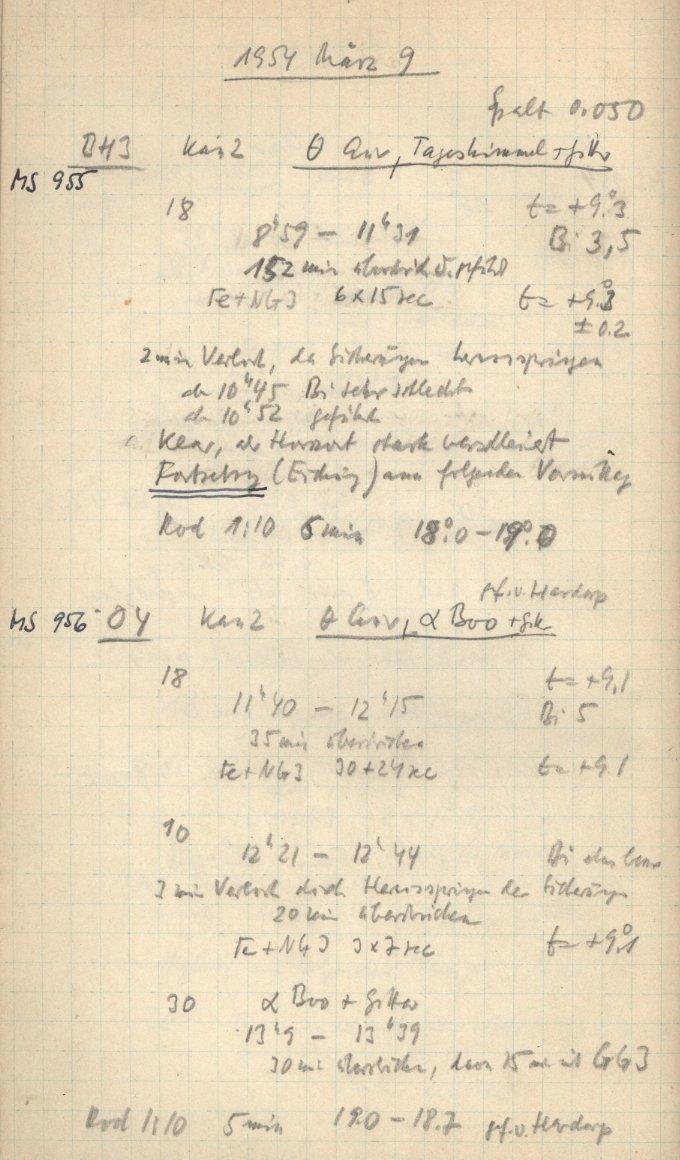 1954 März 9
Spalt 0.050
BH3 Kam2 θ Aur, Tageshimmel + Gitter
MS 955
18 t = +9.°3
8ʰ59 – 11ʰ31 Bi 3,5
152 min überstrichen
Fe+NG3 6x15 sec t = +9.°3
±0.2
2 min Verlust, da Sicherungen herausspringen
ab 10ʰ45 Bi sehr schlecht
ab 10ʰ52 geführt
Klar, am Horizont stark verschleiert
Fortsetzg (Eichung) am folgenden Vormittag
Rod 1:10 5 min 18.°0 – 19.°0
gef. v. Hardorp
MS 956 O4 Kam2 θ Aur, α Boo + Git
18 t = +9.1
11ʰ40 – 12ʰ15 Bi 5
35 min überstrichen
Fe+NG3 30+24 sec t = +9.1
10
12ʰ21 – 12ʰ44 Bi
3 min Verlust durch Herausspringen der Sicherungen
20 min überstrichen
Fe+NG3 3x7 sec t = +9.°1
30 α Boo + Gitter
13ʰ9 – 13ʰ39
30 min überstrichen, davon 15 min mit GG3
Rod 1:10 5 min 19.0 – 18.7 gef. v. Hardorp